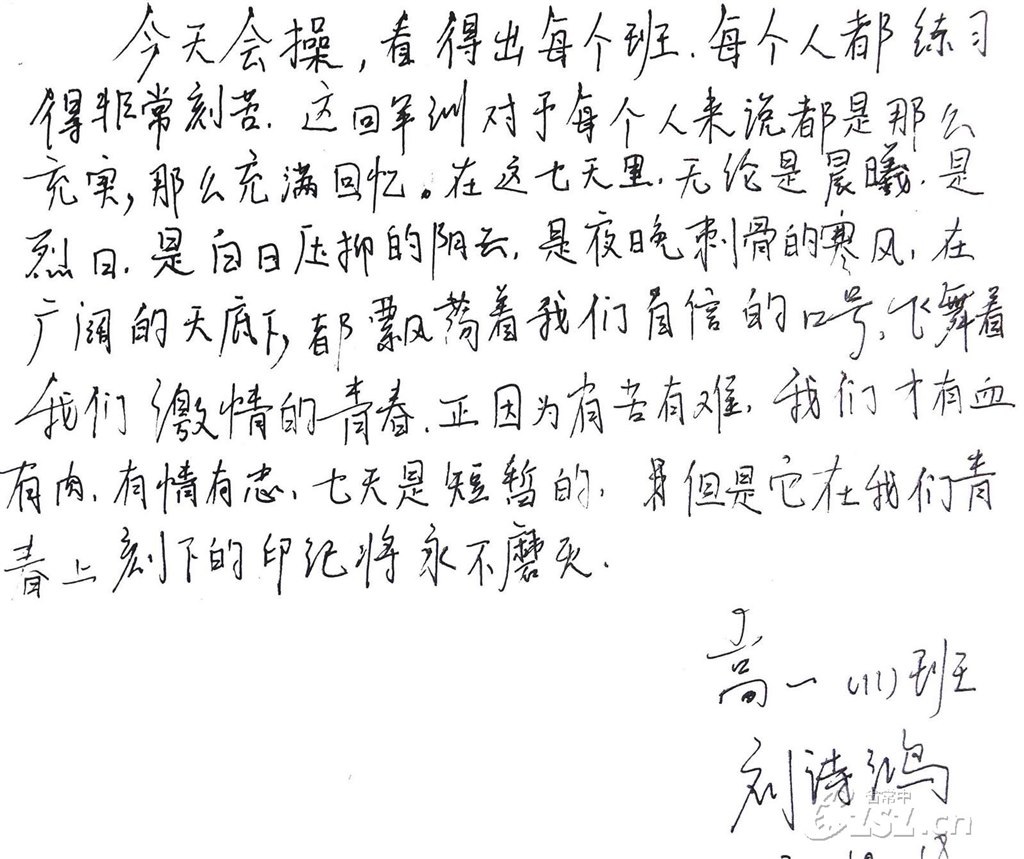 今天会操,看得出每个班.每个人都练习
得非常刻苦.这回军训对于每个人来说都是那么
充实,那么充满回忆。在这七天里.无论是晨曦.是
烈日.是白日压抑的阴云.是夜晚刺骨的寒风.在
广阔的天底下,都飘荡着我们自信的口号、飞舞着
我们激情的青春.正因为有苦有难.我们才有血
有肉.有情有忠.七天是短暂的.但是它在我们青
春上刻下的印纪将永不磨灭.
高一(11)班
刘诗鸿
.cn